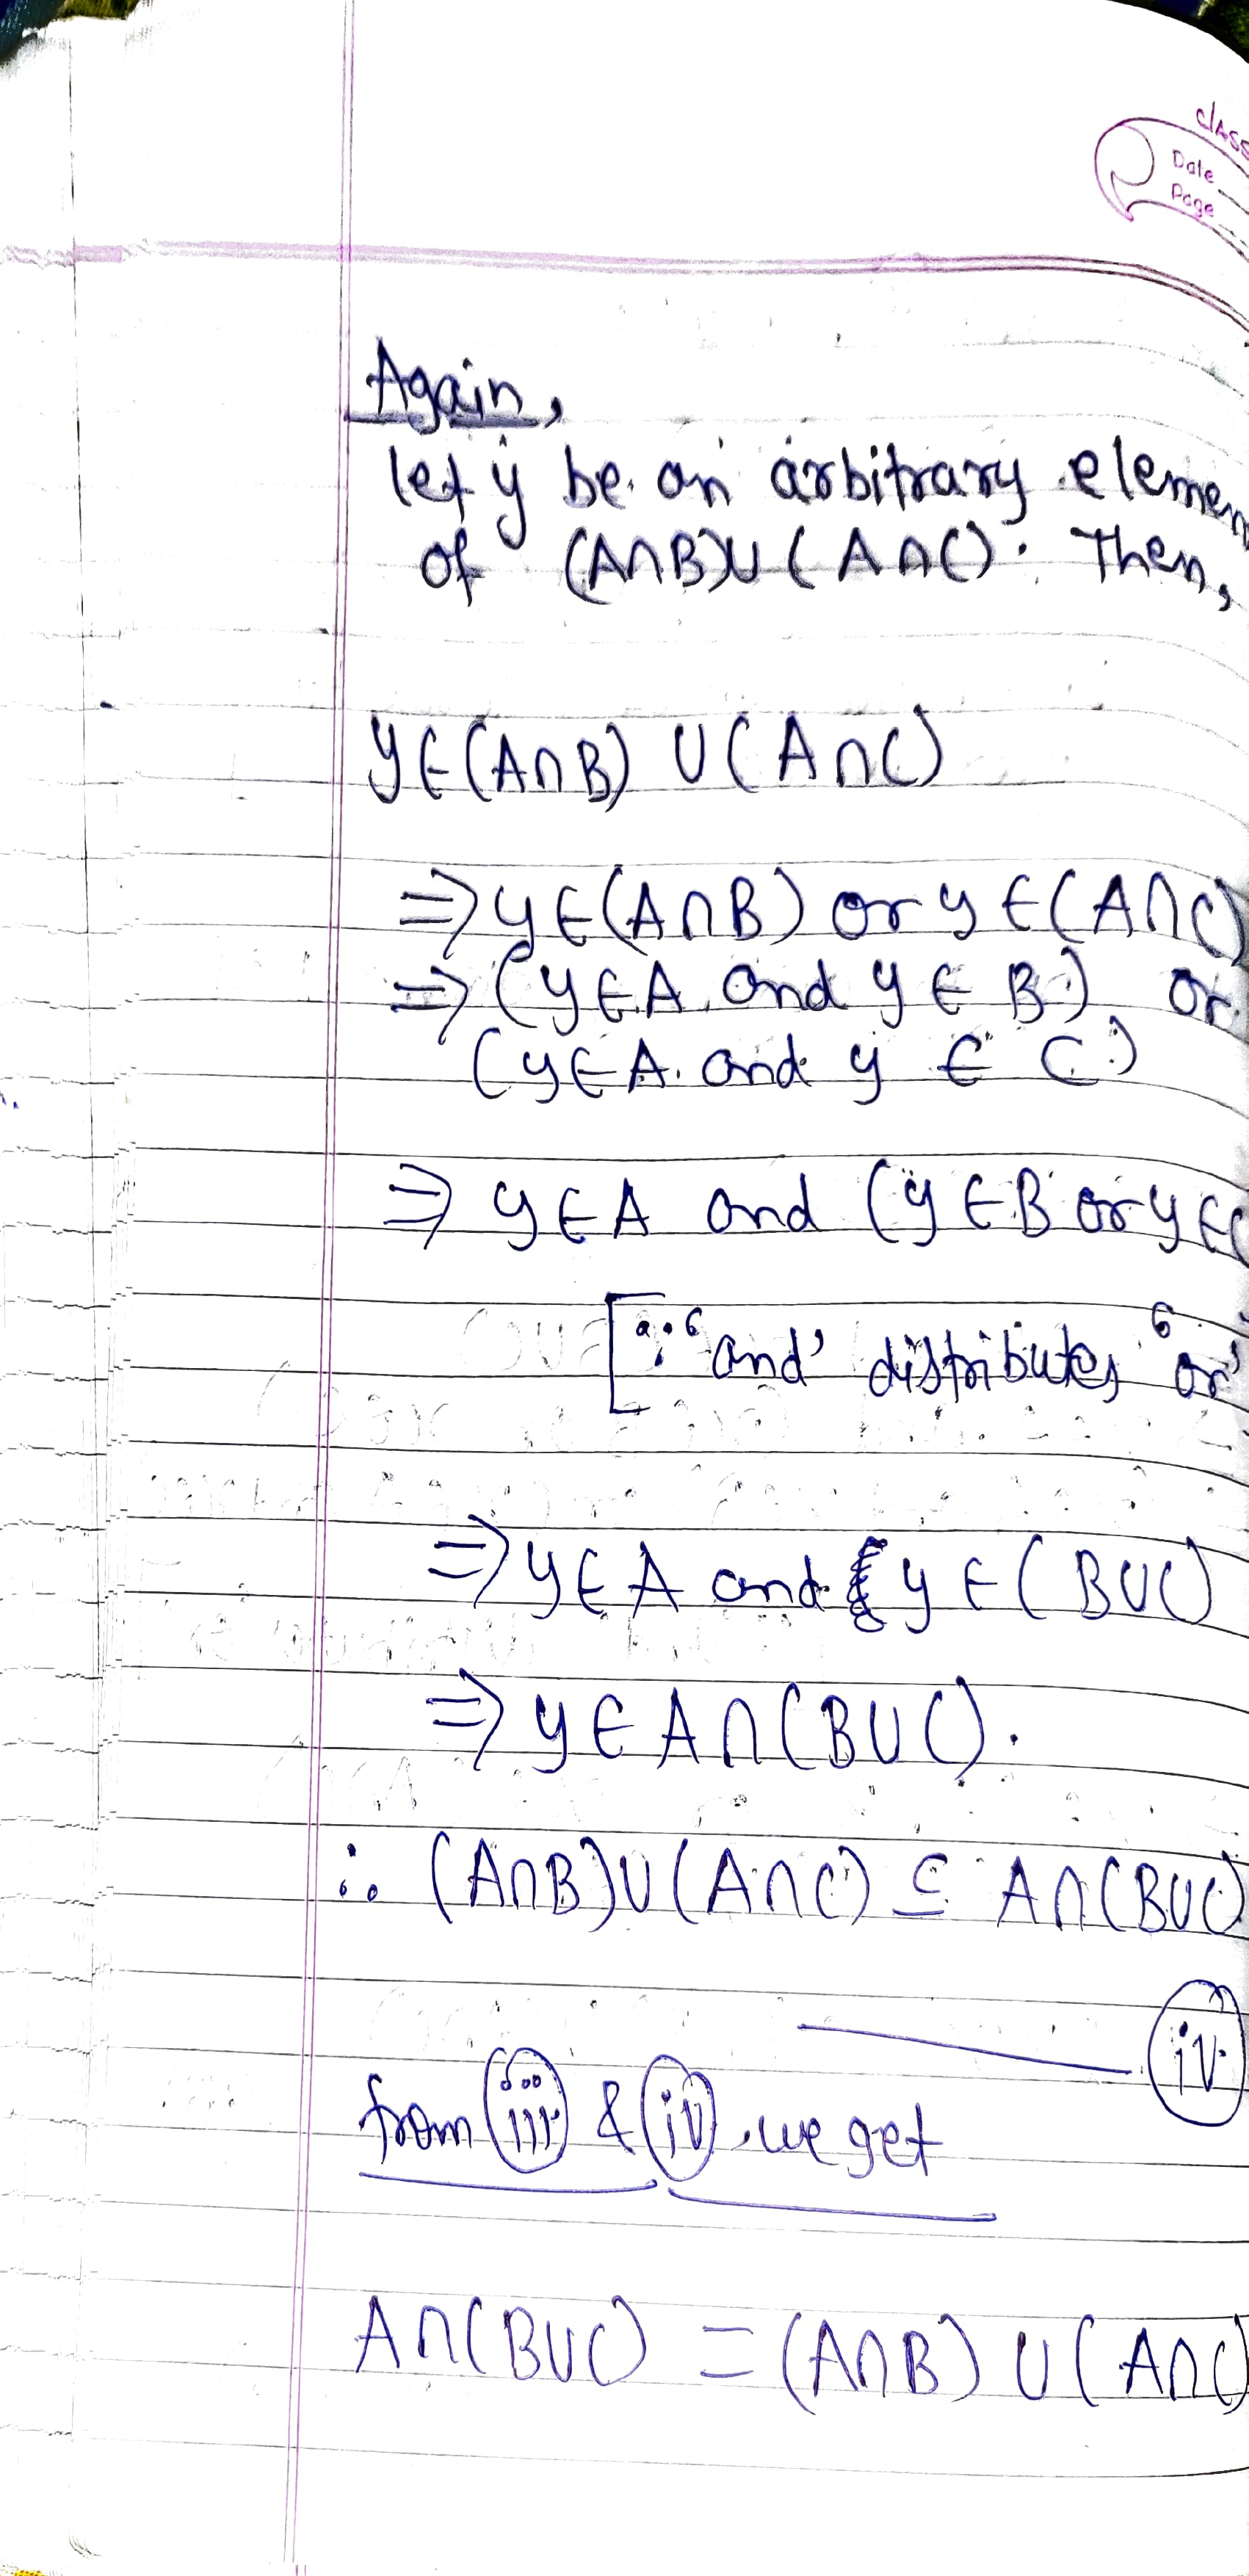 CLASS
Date
Page
Again,
let y be an arbitrary elemen
of (A∩B)∪(A∩C). Then,
y∈(A∩B) ∪(A∩C)
⇒y∈(A∩B) or y∈(A∩C)
⇒(y∈A and y∈B) or
(y∈A and y∈C)
⇒ y∈A and (y∈B or y∈C
[∵ 'and' distributes 'or'
⇒y∈A and y∈(B∪C)
⇒y∈A∩(B∪C).
∴ (A∩B)∪(A∩C) ⊆ A∩(B∪C)
iv
from iii & iv, we get
A∩(B∪C) = (A∩B) ∪(A∩C)